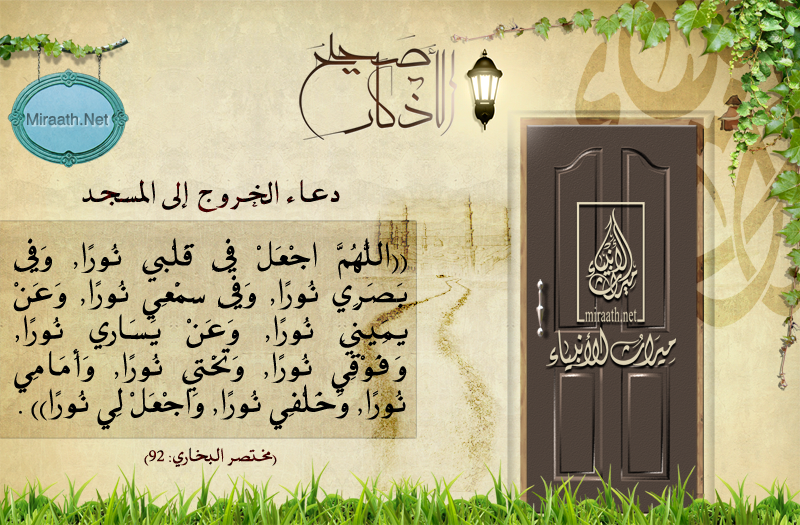 صحيح
الأذكار
Miraath.Net
دعاء الخروج إلى المسجد
((اللَّهُمَّ اجْعَلْ فِي قَلْبِي نُورًا, وَفِي
بَصَرِي نُورًا, وَفِي سمْعِي نُورًا, وَعَنْ
يَمِينِي نُورًا, وَعَنْ يَسَارِي نُورًا,
وَفَوْقِي نُورًا, وَتَحْتِي نُورًا, وَأَمَامِي
نُورًا, وَخَلْفِي نُورًا, وَاجْعَلْ لِي نُورًا)) .
(مختصر البخاري: 92)
ميراث الأنبياء
miraath.net
ميراث الأنبياء